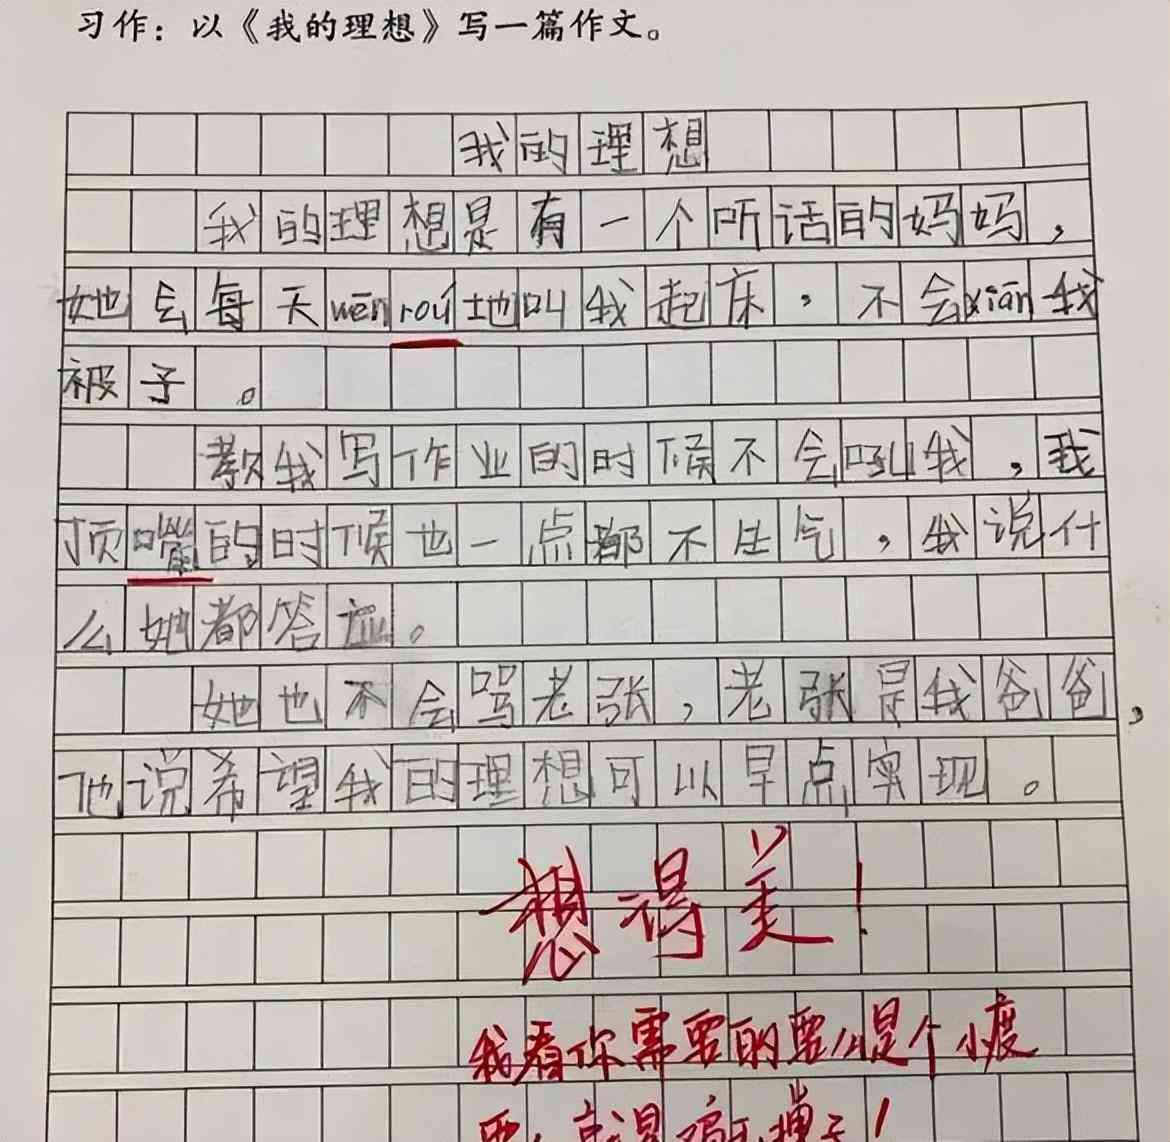 习作：以《我的理想》写一篇作文。
我的理想
我的理想是有一个听话的妈妈，
她会每天wēn roú地叫我起床，不会xiān我
被子。
教我写作业的时候不会吼我，我
顶嘴的时候也一点都不生气，我说什
么她都答应。
她也不会骂老张，老张是我爸爸，
他说希望我的理想可以早点实现。
想得美！
我看你需要的要么是个小度
要